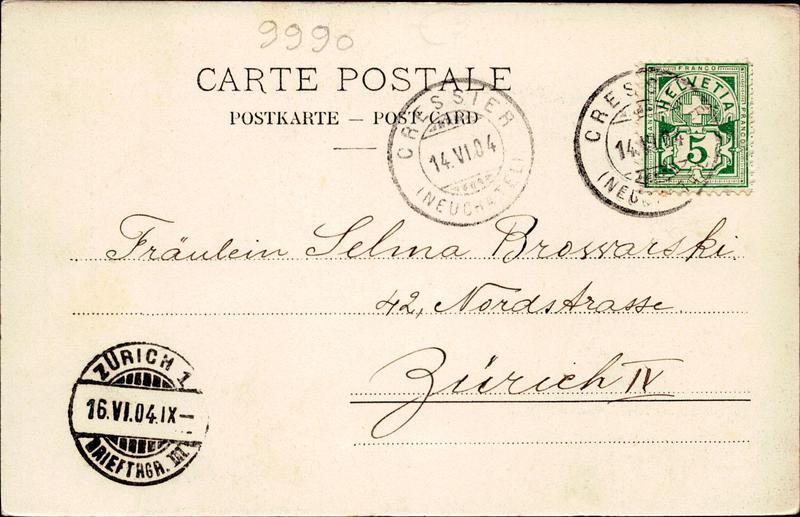 9990
CARTE POSTALE
POSTKARTE — POST CARD
CRESSIER
14.VI.04
(NEUCHATEL)
CRESS
14.VI.04
(NEUCHATEL)
FRANCO
HELVETIA
FRANCO
5
Fräulein Selma Browarski.
42, Nordstrasse.
Zürich IV
ZÜRICH 1
16.VI.04.IX—
BRIEFTRGR. III